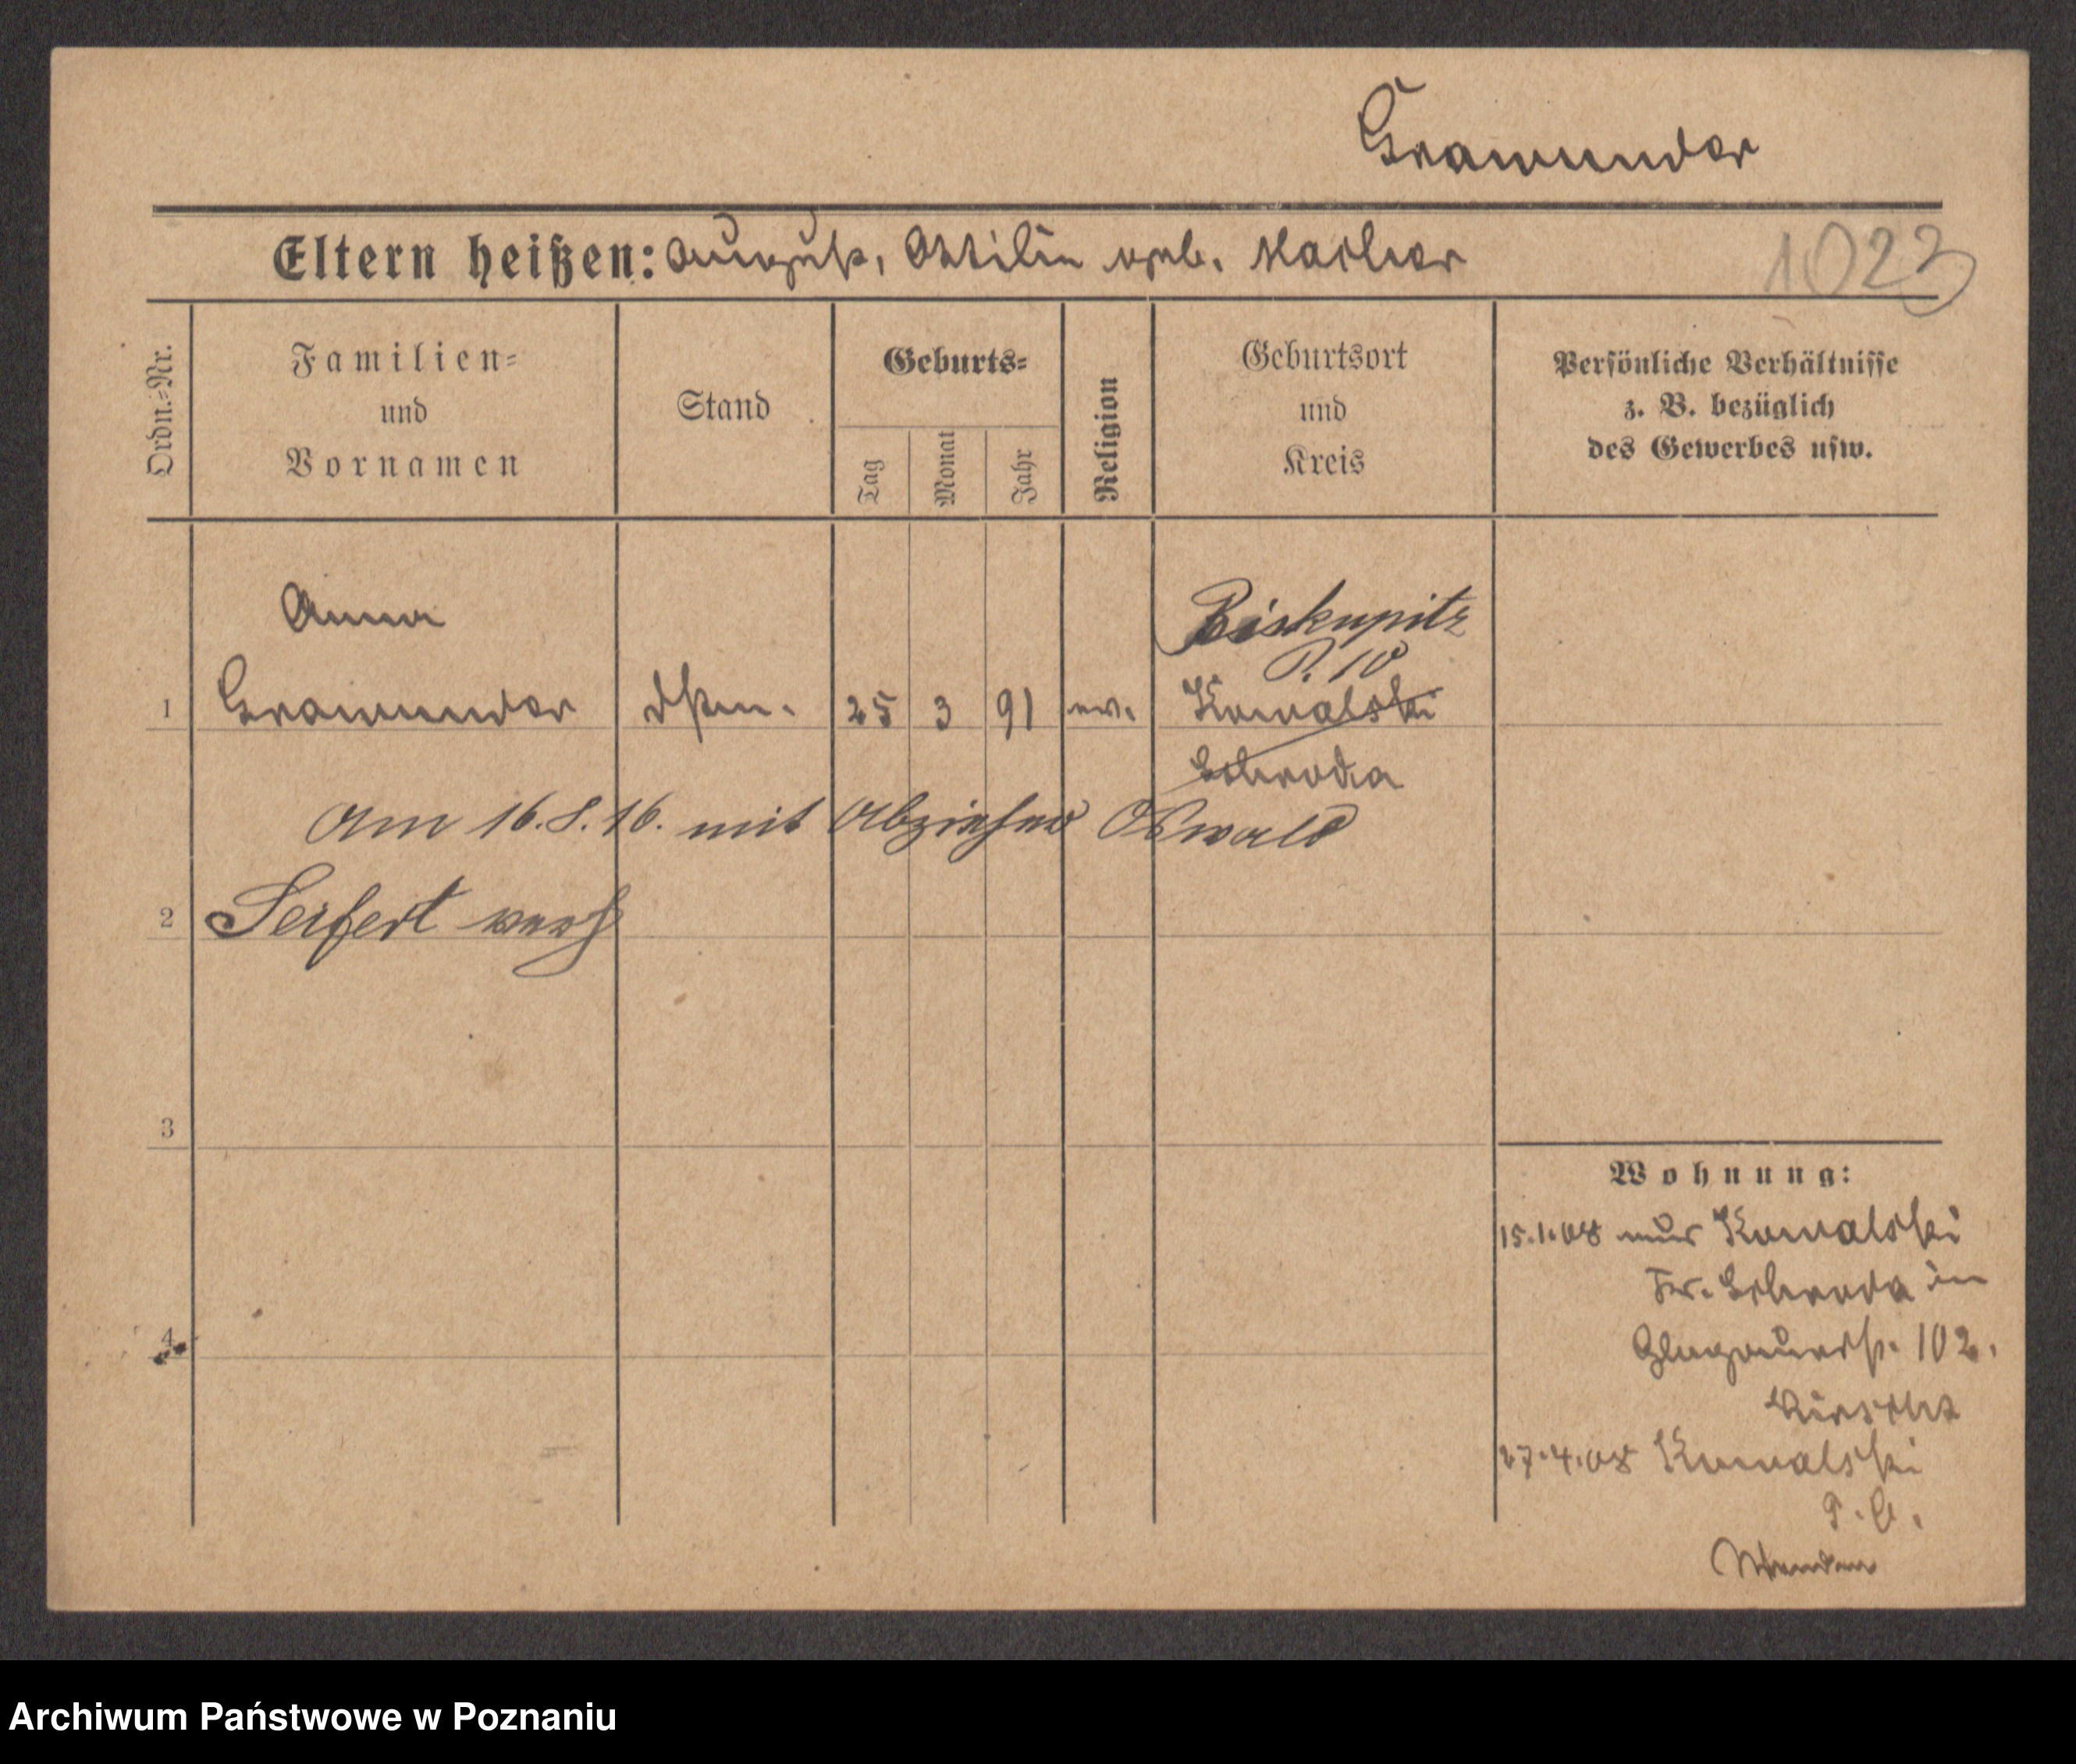 Grawunder
Eltern heißen: August, Ottilie geb. Karcher
1023
Ordn.=Nr.
Familien=
und
Vornamen
Stand
Geburts=
Tag
Monat
Jahr
Religion
Geburtsort
und
Kreis
Persönliche Verhältnisse
z. B. bezüglich
des Gewerbes usw.
Anna
Biskupitz
P. 10
1 Grawunder dstm. 25 3 91 ev. Kowalski
Schroda
Am 16.8.16. mit Abzieher Oswald
2 Seifert verh
3
4
Wohnung:
15.1.08 aus Kowalski
Kr. Schroda in
Glogauerstr. 102.
27.4.08 Kowalski
Wenden
Archiwum Państwowe w Poznaniu